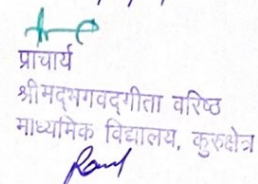 प्राचार्य
श्रीमद्भगवद्गीता वरिष्ठ
माध्यमिक विद्यालय, कुरुक्षेत्र